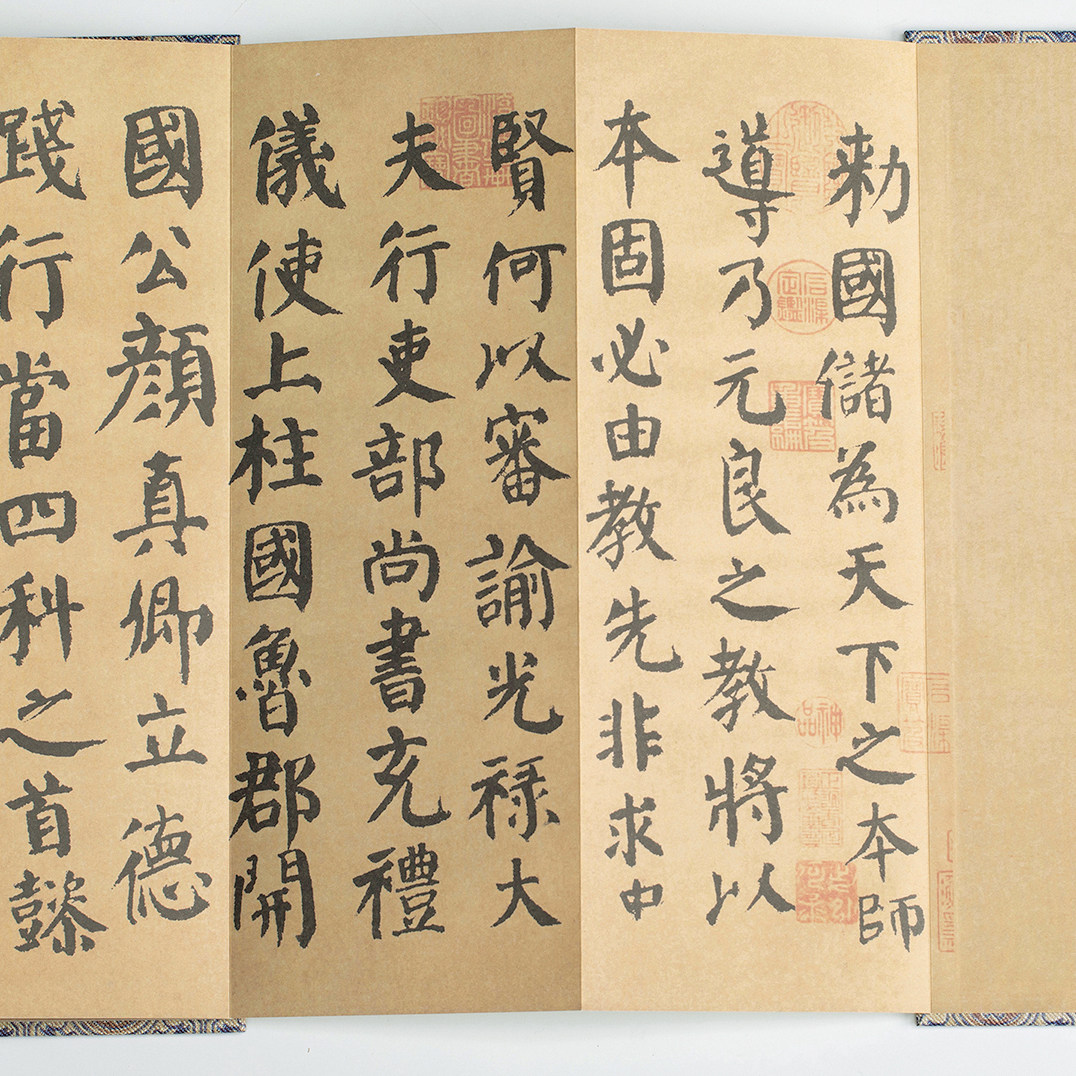 勑國儲為天下之本師
導乃元良之教將以
本固必由教先非求中
賢何以審諭光祿大
夫行吏部尚書充禮
儀使上柱國魯郡開
國公顏真卿立德
踐行當四科之首懿
神品